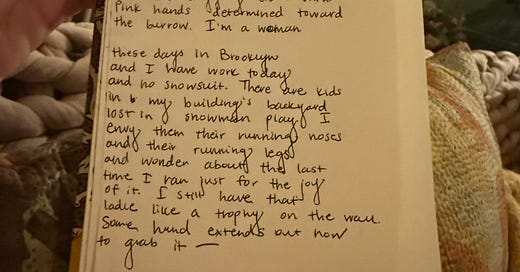 Pink hands determined toward
the burrow. I'm a woman
these days in Brooklyn
and I have work today
and no snowsuit. There are kids
in my building's backyard
lost in snowman play. I
envy them their running noses
and their running legs
and wonder about the last
time I ran just for the joy
of it. I still have that
ladle like a trophy on the wall.
Some hand extends out now
to grab it —